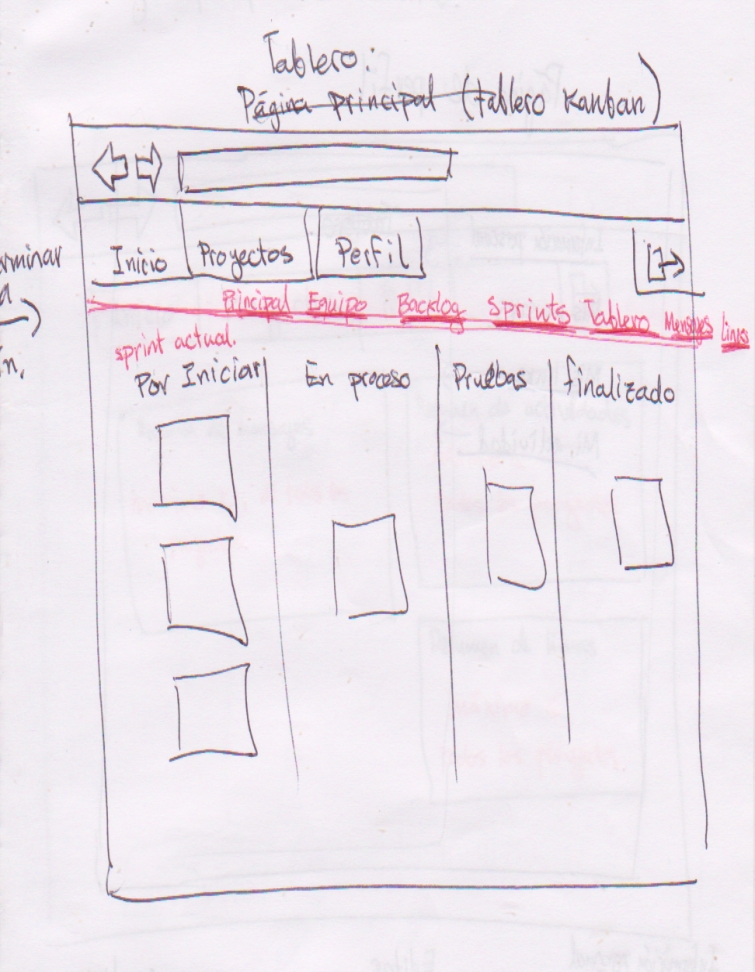 Tablero:
Página principal (tablero Kanban)
Inicio Proyectos Perfil
Principal Equipo Backlog Sprints Tablero Mensajes
sprint actual.
Por Iniciar En proceso Pruebas finalizado